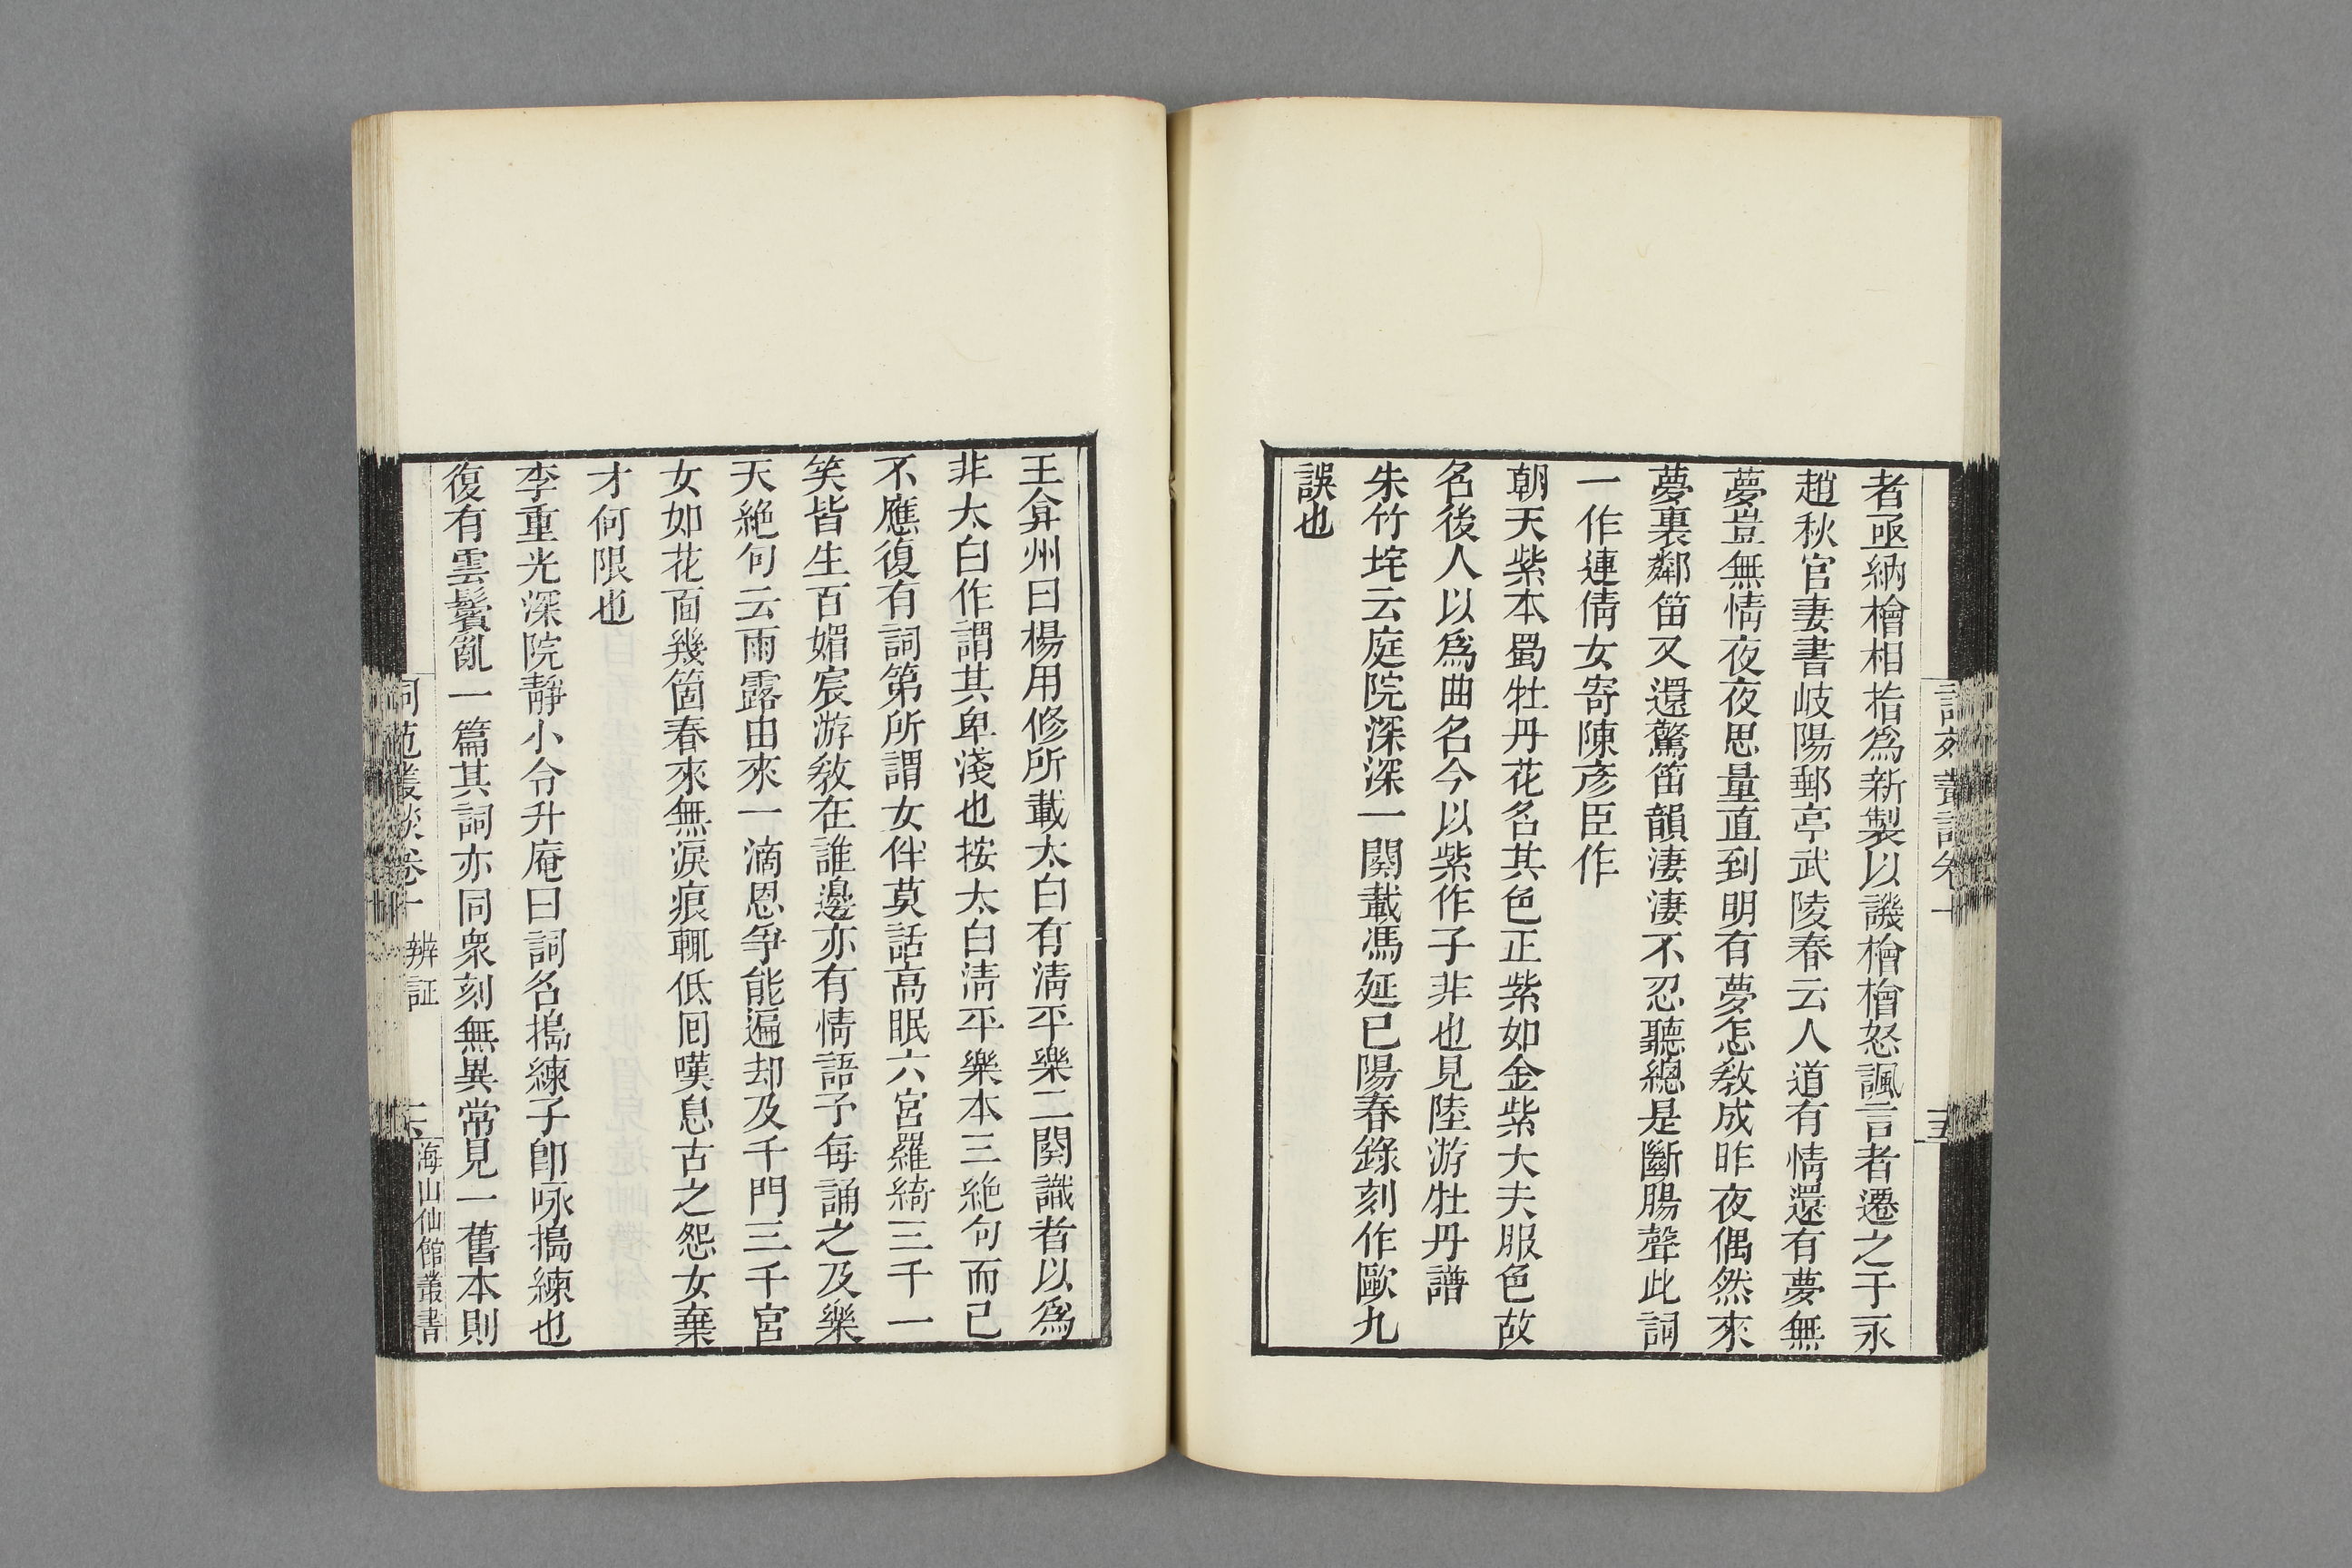 者亟納檜相指爲新製以譏檜檜怒諷言者遷之于永
趙秋官妻書岐陽郵亭武陵春云人道有情還有夢無
夢豈無情夜夜思量直到明有夢怎敎成昨夜偶然來
夢裏鄰笛又還驚笛韻淒淒不忍聽總是斷腸聲此詞
一作連倩女寄陳彥臣作
朝天紫本蜀牡丹花名其色正紫如金紫大夫服色故
名後人以爲曲名今以紫作子非也見陸游牡丹譜
朱竹垞云庭院深深一闋載馮延巳陽春錄刻作歐九
誤也
王弇州曰楊用修所載太白有清平樂二闋識者以爲
非太白作謂其卑淺也按太白清平樂本三絶句而已
不應復有詞第所謂女伴莫話高眠六宮羅綺三千一
笑皆生百媚宸游敎在誰邊亦有情語予每誦之及樂
天絶句云雨露由來一滴恩爭能遍却及千門三千宮
女如花面幾箇春來無淚痕輒低囘嘆息古之怨女棄
才何限也
李重光深院靜小令升庵曰詞名搗練子卽咏搗練也
復有雲鬢亂一篇其詞亦同衆刻無異常見一舊本則
詞苑叢談卷十 辨証
海山仙館叢書